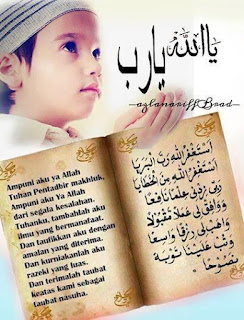 ياالله يارب
-azlanariffBrad-
Ampuni aku ya Allah
Tuhan Pentadbir makhluk,
Ampuni Aku ya Allah
dari segala kesalahan.
Tuhanku, tambahlah aku
ilmu yang bermanafaat.
Dan taufikkan aku dengan
amalan yang diterima.
Dan kurniakanlah aku
razeki yang luas.
Dan terimalah taubat
keatas kami sebagai
taubat nasuha.
أَسْتَغْفِرُ اللهَ رَبَّ الْبَرَايَا
أَسْتَغْفِرُ اللهَ مِنَ الْخَطَايَا
رَبِّ زِدْنِي عِلْمًا نَافِعًا
وَوَفِّقْنِي عَمَلًا مَقْبُوْلًا
وَهَبْلِي رِزْقًا وَاسِعًا
وَتُبْ عَلَيْنَا تَوْبَةً
نَصُوْحًا